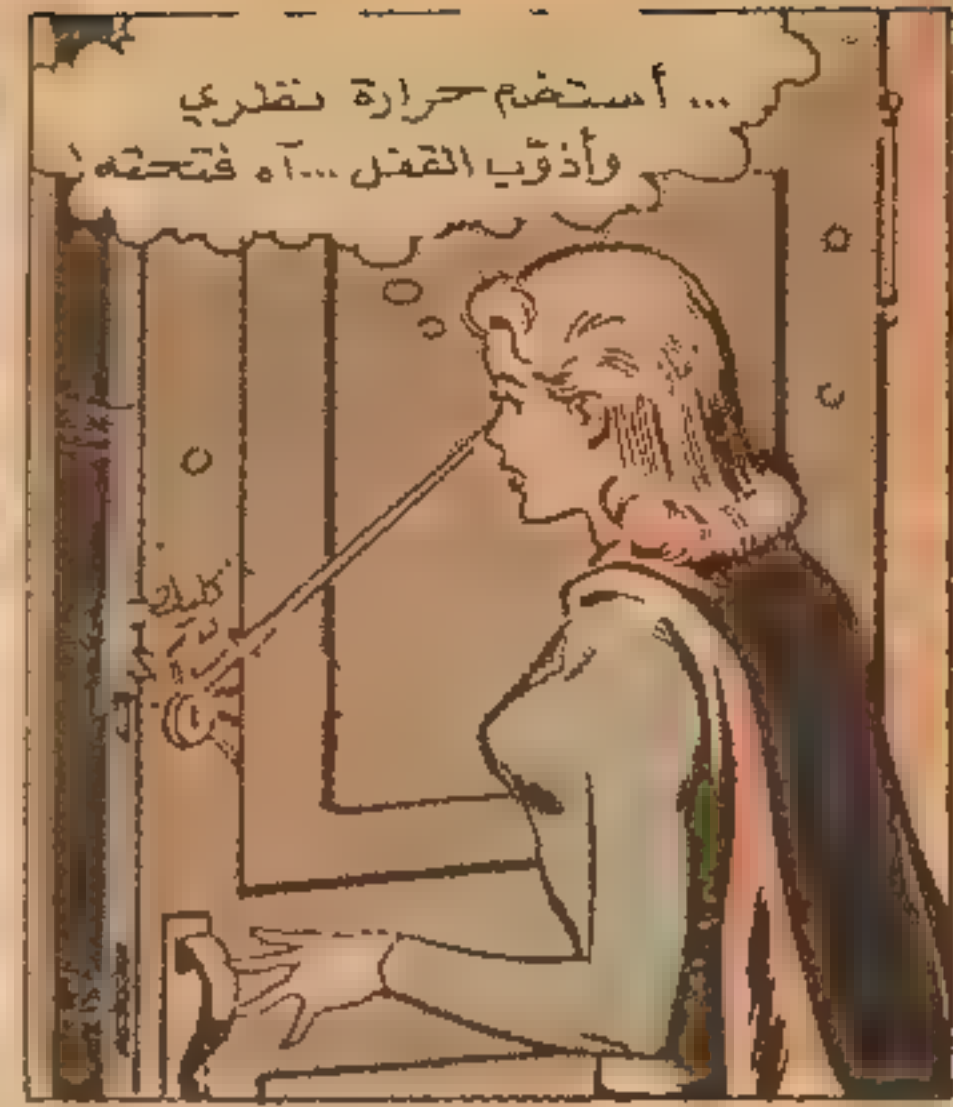 ... أستخدم حرارة نظري
وأذوّب القفل ...آه فتحته !
كليك